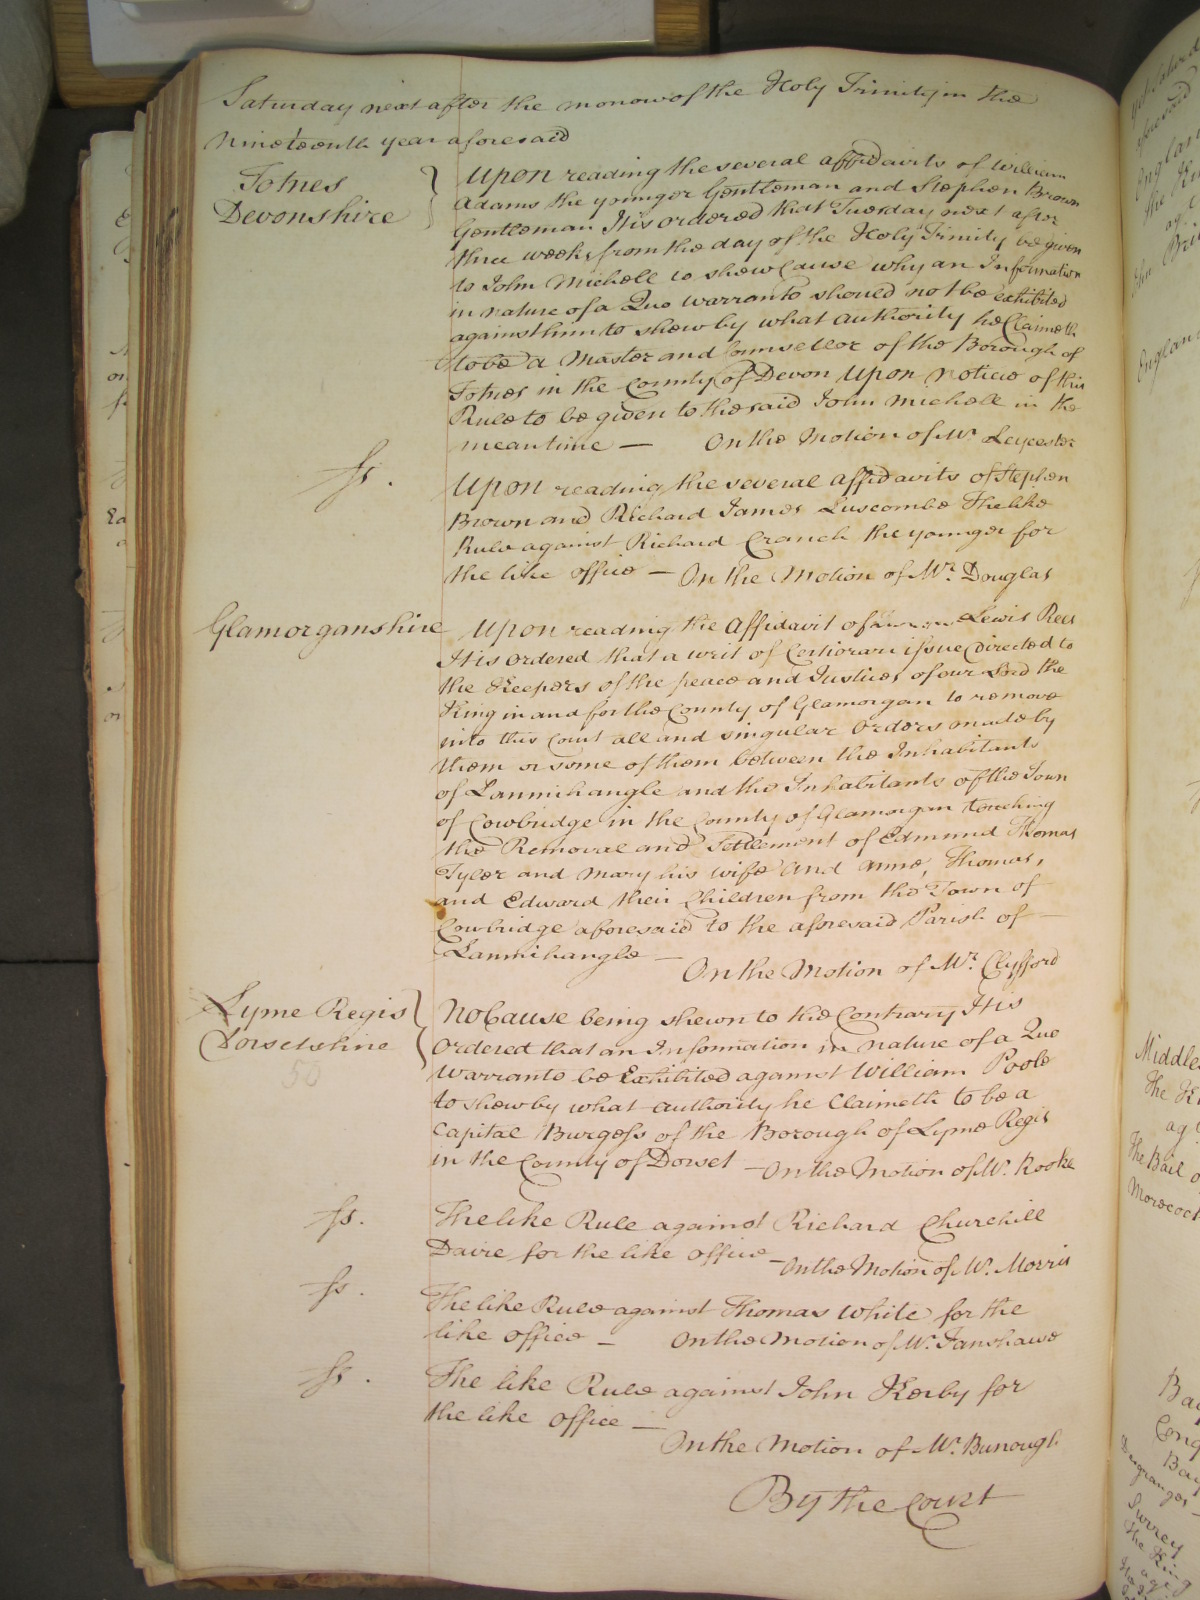 Saturday next after the morrow of the Holy Trinity in the
Nineteenth year aforesaid
Totnes
Devonshire
Upon reading the several affidavits of William
Adams the younger Gentleman and Stephen Brown
Gentleman It is ordered that Tuesday next after
three weeks from the day of the Holy Trinity be given
to John Michell to shew Cause why an Information
in nature of a Quo Warranto should not be exhibited
against him to shew by what Authority he Claimeth
to be a Master and Counsellor of the Borough of
Totnes in the County of Devon Upon notice of this
Rule to be given to the said John Michell in the
mean time — On the Motion of Mr. Leycester
ss.
Upon reading the several Affidavits of Stephen
Brown and Richard James Luscombe The like
Rule against Richard Cranch the younger for
the like office — On the Motion of Mr. Douglas
Glamorganshire
Upon reading the Affidavit of Lewis Rees
It is ordered that a writ of Certiorari issue Directed to
the Keepers of the peace and Justices of our Lord the
King in and for the County of Glamorgan to remove
into this Court all and singular Orders made by
them or some of them between the Inhabitants
of Lanmihangle and the Inhabitants of the Town
of Cowbridge in the County of Glamorgan touching
the Removal and Settlement of Edmund Thomas
Tyler and Mary his wife and Anne, Thomas,
and Edward their Children from the Town of
Cowbridge aforesaid to the aforesaid Parish of —
Lanmihangle — On the Motion of Mr. Clyfford
Lyme Regis
Dorsetshire
50
No Cause being shewn to the Contrary It is
Ordered that an Information in nature of a Quo
Warranto be Exhibited against William Poole
to shew by what Authority he Claimeth to be a
Capital Burgess of the Borough of Lyme Regis
in the County of Dorset — On the Motion of Mr. Rooke
ss.
The like Rule against Richard Churchill
Davie for the like office — On the Motion of Mr. Morris
ss.
The like Rule against Thomas White for the
like office — On the Motion of Mr. Fanshawe
ss.
The like Rule against John Kerby for
the like office —
On the Motion of Mr. Burrough
By the Court
England
Middle
The Ki
ag
The Bail o
Surrey
The King